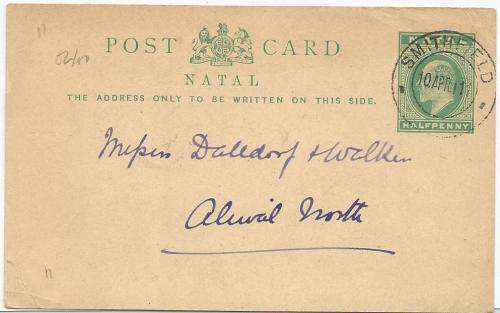 POST CARD
NATAL
THE ADDRESS ONLY TO BE WRITTEN ON THIS SIDE.
SMITHFIELD
10 APR 11
HALFPENNY
Messrs Dalldorf & Walker
Aliwal North
11